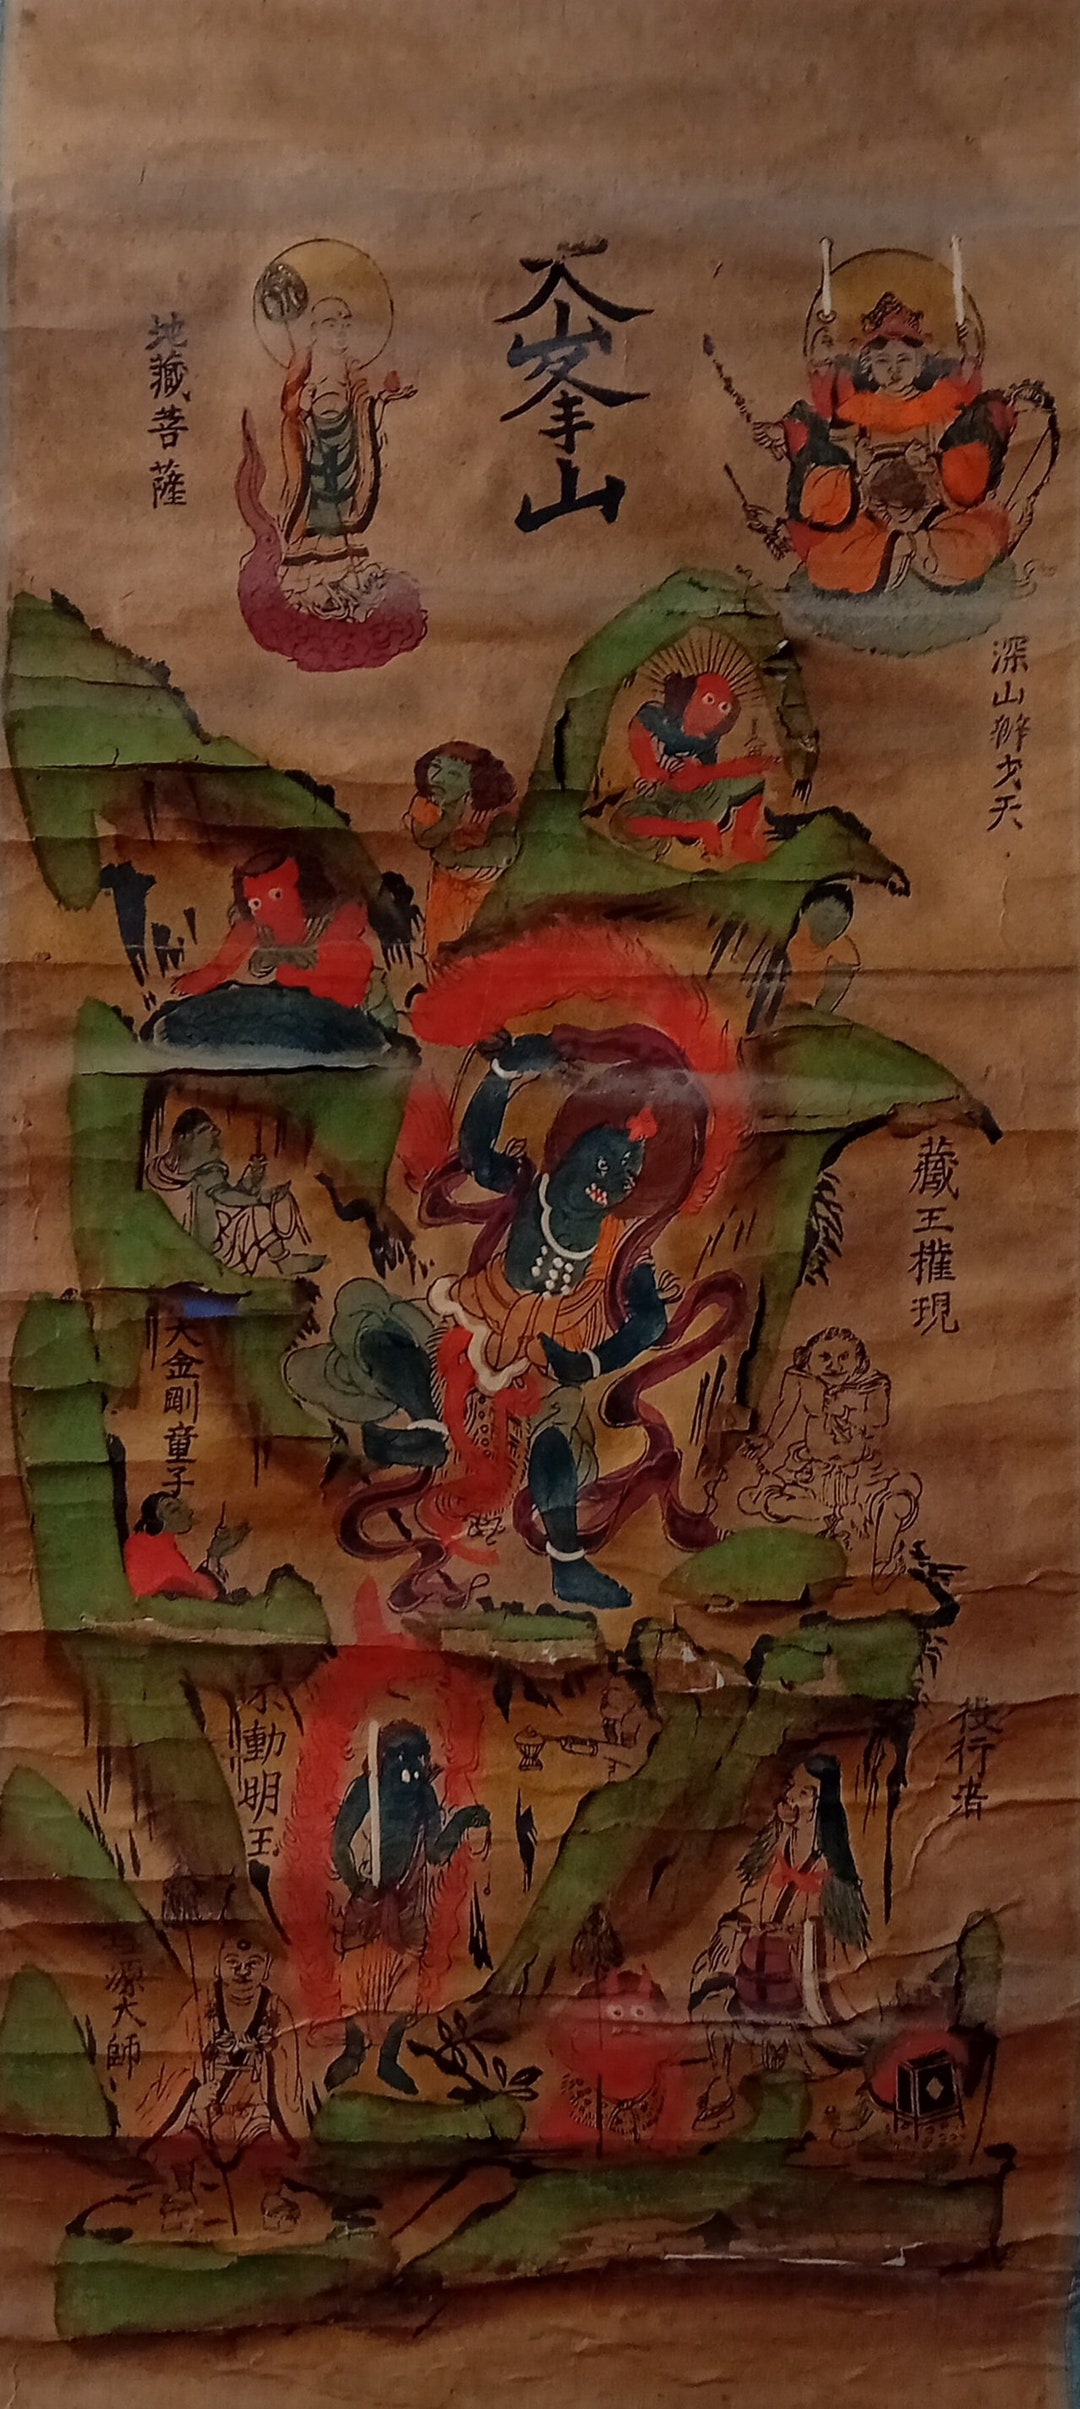 大峯山
深山辨才天
地藏菩薩
藏王權現
大金剛童子
役行者
不動明王
源大師